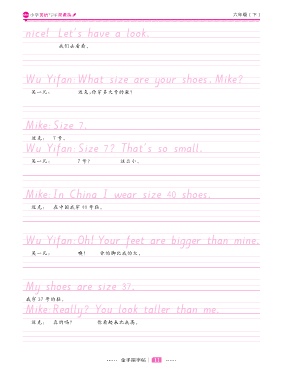 小学英语写字课课练
六年级(下)
nice! Let's have a look.
我们去看看。
Wu Yifan: What size are your shoes, Mike?
吴一凡: 迈克,你穿多大号的鞋?
Mike: Size 7.
迈克: 7 号。
Wu Yifan: Size 7? That's so small.
吴一凡: 7 号? 这么小。
Mike: In China I wear size 40 shoes.
迈克: 在中国我穿 40 号鞋。
Wu Yifan: Oh! Your feet are bigger than mine.
吴一凡: 噢! 你的脚比我的大。
My shoes are size 37.
我穿 37 号的鞋。
Mike: Really? You look taller than me.
迈克: 真的吗? 你看起来比我高。
31